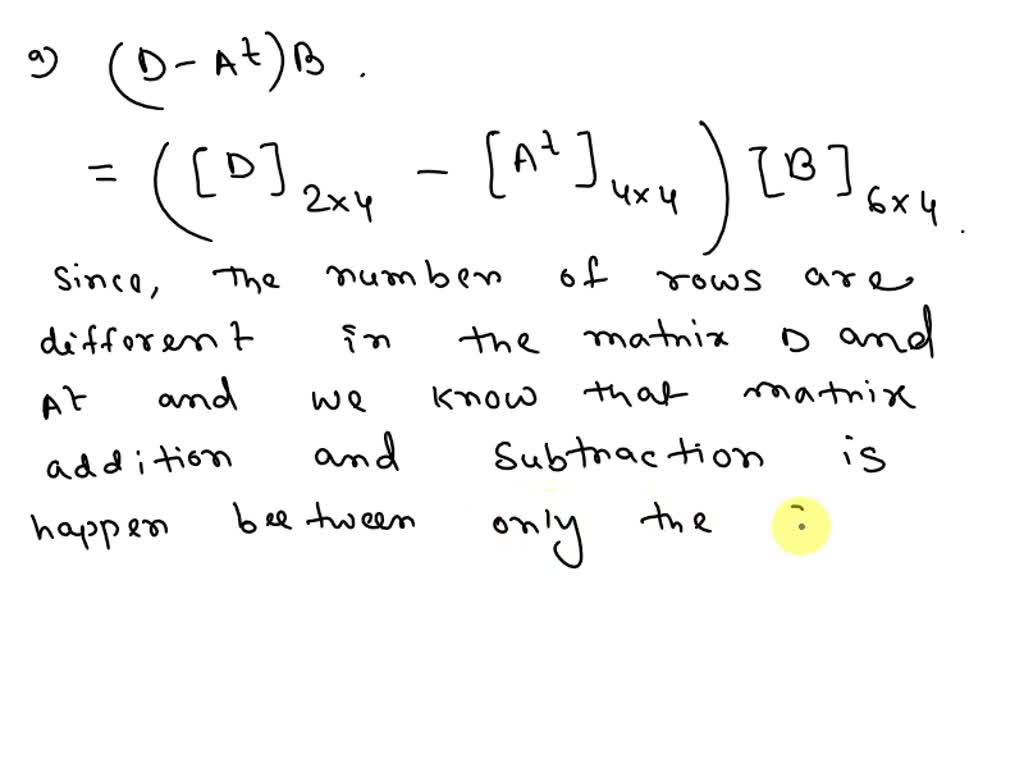 a) (D - A^t)B .
= ([D]_{2×4} - [A^t]_{4×4}) [B]_{6×4} .
Since, the number of rows are
different in the matrix D and
At and we know that matrix
addition and subtraction is
happen beetween only the